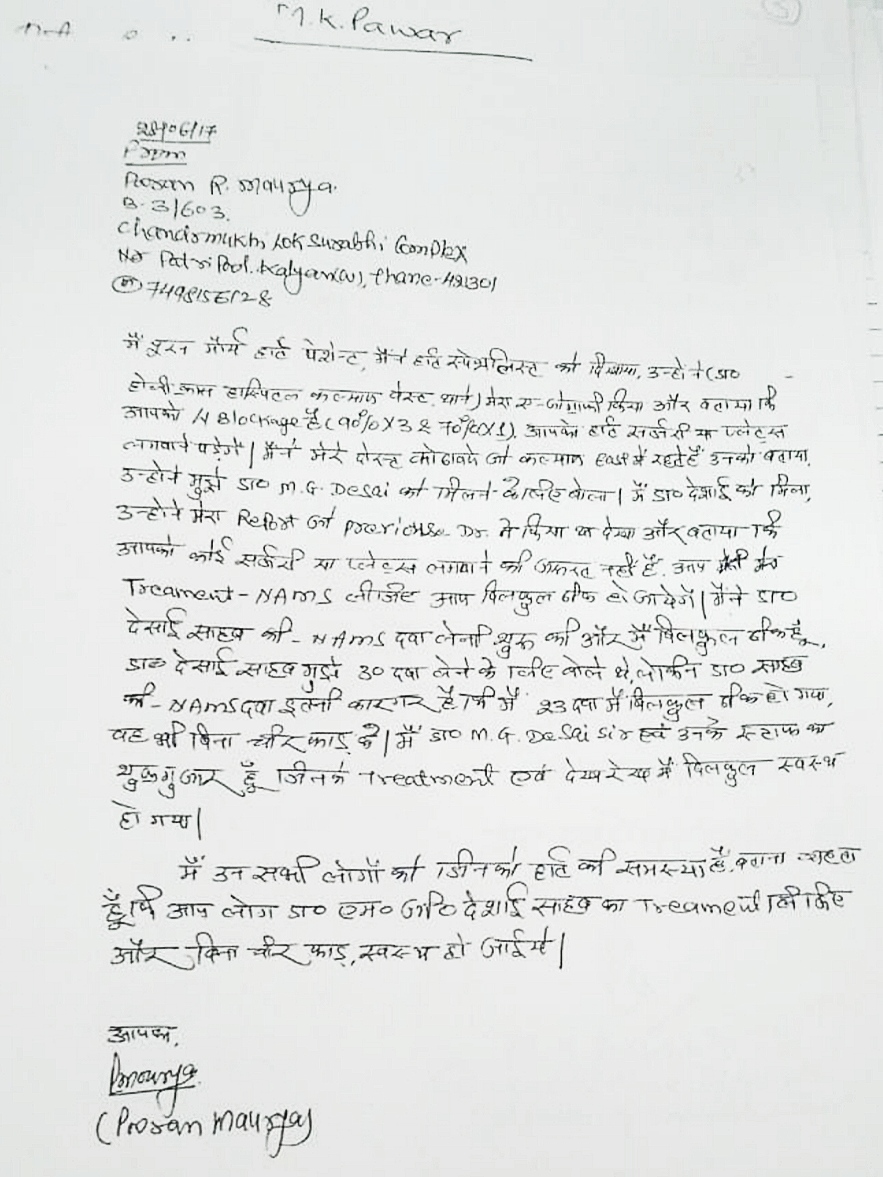 M.K. Pawar
28/06/17
From
Posan R. maurya.
B-3/603,
Chandramukhi Lok Surabhi Complex
Nr Patri Pool. Kalyan(w), thane-421301
7498156128
मैं पुरन मौर्य हार्ट पेशेन्ट, मैंने हार्ट स्पेशलिस्ट को दिखाया, उन्होंने (डा०
होली क्रास हास्पिटल कल्याण वेस्ट, थाने) मेरा एन्जोग्राफी किया और बताया कि
आपको 4 Blockage है (90%X3 & 70%X1), आपको हार्ट सर्जरी या प्लेट्स
लगवाने पड़ेगें | मैंने मेरे दोस्त जो कल्याण East में रहते हैं उनको बताया,
उन्होने मुझे डा० M.G. Desai को मिलने के लिए बोला | मैं डा० देशाई को मिला,
उन्होने मेरा Report जो previouse Dr. ने किया था देखा और बताया कि
आपको कोई सर्जरी या प्लेट्स लगवाने की जरूरत नहीं है. आप मेरा
Treament-NAMS लीजिए आप बिलकुल ठीक हो जायेगें | मैंने डा०
देसाई साहब की - NAMS दवा लेनी शुरू की और मैं बिलकुल ठीक हूँ,
डा० देसाई साहब मुझे 30 दवा लेने के लिए बोले थे, लेकिन डा० साहब
की - NAMS दवा इतनी कारगर है कि मैं 23 दवा में बिलकुल ठीक हो गया,
वह भी बिना चीर फाड़ के | मैं डा० M.G. Desai sir एवं उनके स्टाफ का
शुक्रगुजार हूँ जिनके Treatment एवं देखरेख में बिलकुल स्वस्थ
हो गया |
मैं उन सभी लोगों को जिनको हार्ट की समस्या है, बताना चाहता
हूँ कि आप लोग डा० एम० जी० देशाई साहब का Treament लीजिए
और बिना चीर फाड़, स्वस्थ हो जाईये |
आपका,
Pmourya.
(Posan maurya)